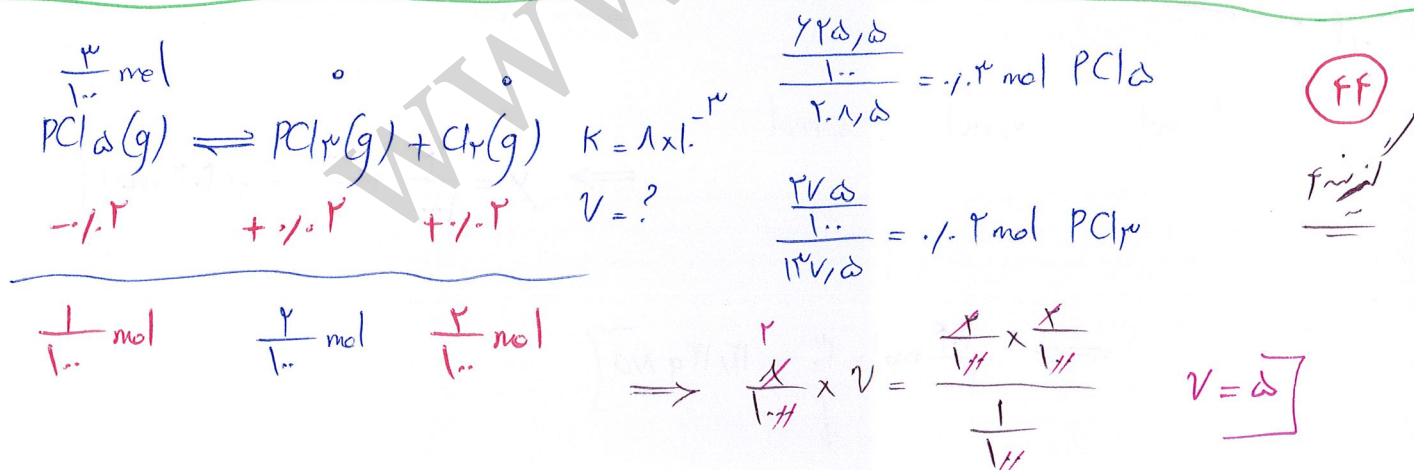 ۴۴
گزینه ۴
۳/۱۰۰ mol ۰ ۰
PCl۵(g) ⇌ PCl۳(g) + Cl۲(g) K = ۸×۱۰^-۳
-۰/۰۲ +۰/۰۲ +۰/۰۲ V = ?
۱/۱۰۰ mol ۲/۱۰۰ mol ۲/۱۰۰ mol
(۶۲۵,۵/۱۰۰)/۲۰۸,۵ = ۰/۰۳ mol PCl۵
(۲۷۵/۱۰۰)/۱۳۷,۵ = ۰/۰۲ mol PCl۳
⟹ ۸/۱۰۰۰ × V = (۲/۱۰۰ × ۲/۱۰۰)/(۱/۱۰۰) V = ۵
WWW